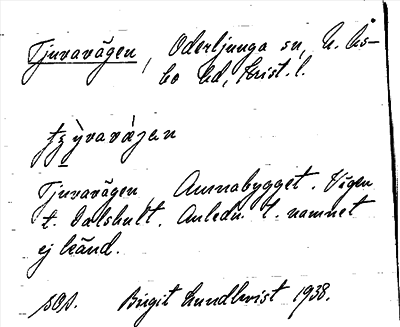 Tjuvavägen, Oderljunga sn, N. Ås-
bo hd, Krist. l.
Tjuvavägen Amnabygget. Vägen
t. Dalshult. Anledn. t. namnet
ej känd.
Birgit Lundkvist 1938.